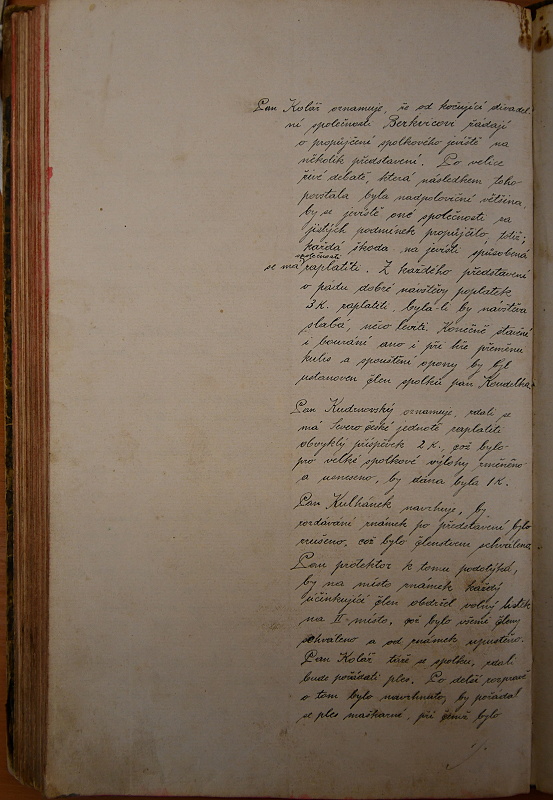 Pan Kolář oznamuje, že od kočující divadel-
ní společnosti Berkvicovi žádají
o propůjčení spolkového jeviště na
několik představení. Po velice
živé debatě, která následkem toho
povstala byla nadpoloviční většina,
by se jeviště oné společnosti za
jistých podmínek propůjčilo, totiž;
každá škoda na jevišti způsobená
společností
se má zaplatiti. Z každého představení
v pádu dobré návštěvy poplatek
3 K. zaplatiti, byla-li by návštěva
slabá, něco sleviti. Konečně stavění
i bourání ano i při hře přeměnu
kulis a spouštění opony by byl
ustanoven člen spolku pan Koudelka.
Pan Kudrnovský oznamuje, zdali se
má Severočeské jednotě zaplatiti
obvyklý příspěvek 2 K., což bylo
pro velké spolkové výlohy změněno
a usneseno, by dána byla 1 K.
Pan Kulhánek navrhuje, by
rozdávání známek po představení bylo
zrušeno, což bylo členstvem schváleno.
Pan protektor k tomu podotýká,
by na místo známek každý
účinkující člen obdržel volný lístek
na II. místo, což bylo všemi členy
schváleno a od známek upuštěno.
Pan Kolář táže se spolku, zdali
bude pořádati ples. Po delší rozpravě
o tom bylo navrhnuto, by pořádal
se ples maškarní, při čemž bylo